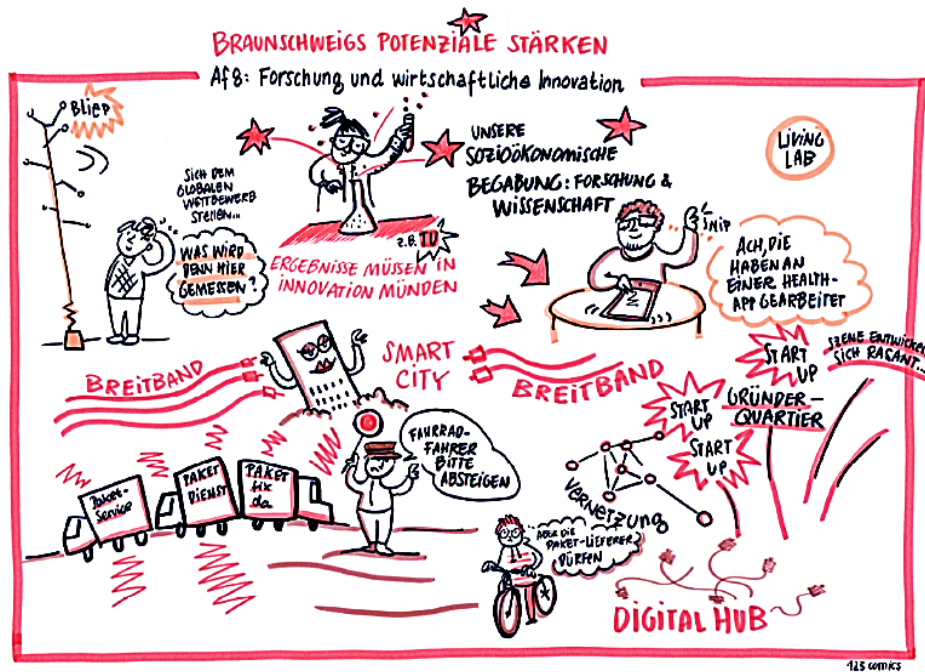 BRAUNSCHWEIGS POTENZIALE STÄRKEN
Af8: Forschung und wirtschaftliche Innovation
BLIEP
SICH DEM
GLOBALEN
WETTBEWERB
STELLEN...
WAS WIRD
DENN HIER
GEMESSEN?
z.B. TU
ERGEBNISSE MÜSSEN IN
INNOVATION MÜNDEN
UNSERE
SOZIOÖKONOMISCHE
BEGABUNG: FORSCHUNG &
WISSENSCHAFT
SNIP
LIVING
LAB
ACH, DIE
HABEN AN
EINER HEALTH-
APP GEARBEITET
BREITBAND
SMART
CITY
BREITBAND
START
UP
SZENE ENTWICKE
SICH RASANT...
START
UP
GRÜNDER-
QUARTIER
START
UP
FAHRRAD-
FAHRER
BITTE
ABSTEIGEN
Paket-
Service
PAKET
DIENST
PAKET
fix
da
VERNETZUNG
ABER DIE
PAKET-LIEFERER
DÜRFEN
DIGITAL HUB
123 comics